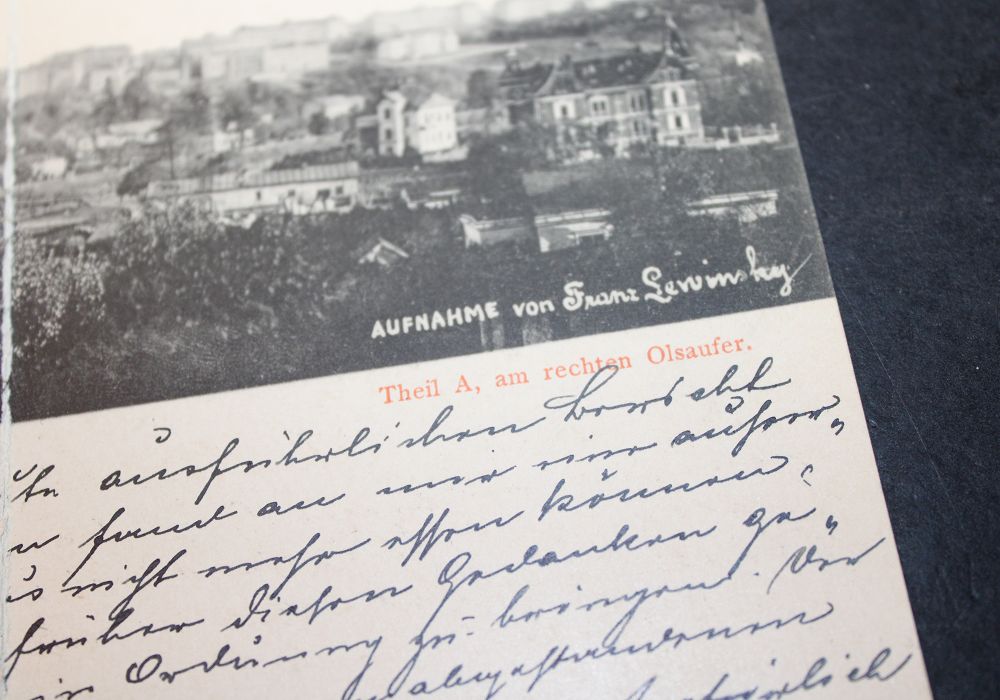 AUFNAHME von Franz Lewinsky
Theil A, am rechten Olsaufer.
ausführlichen Bericht
fand an mir eine außer„
nicht mehr essen können,
früher diesen Gedanken ge„
in Ordnung zu bringen. Der
abgestandenen